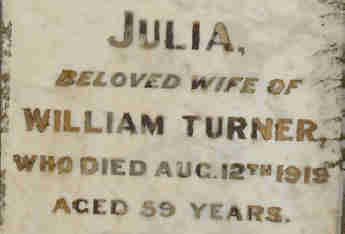 JULIA,
BELOVED WIFE OF
WILLIAM TURNER,
WHO DIED AUG. 12TH 1919
AGED 59 YEARS.